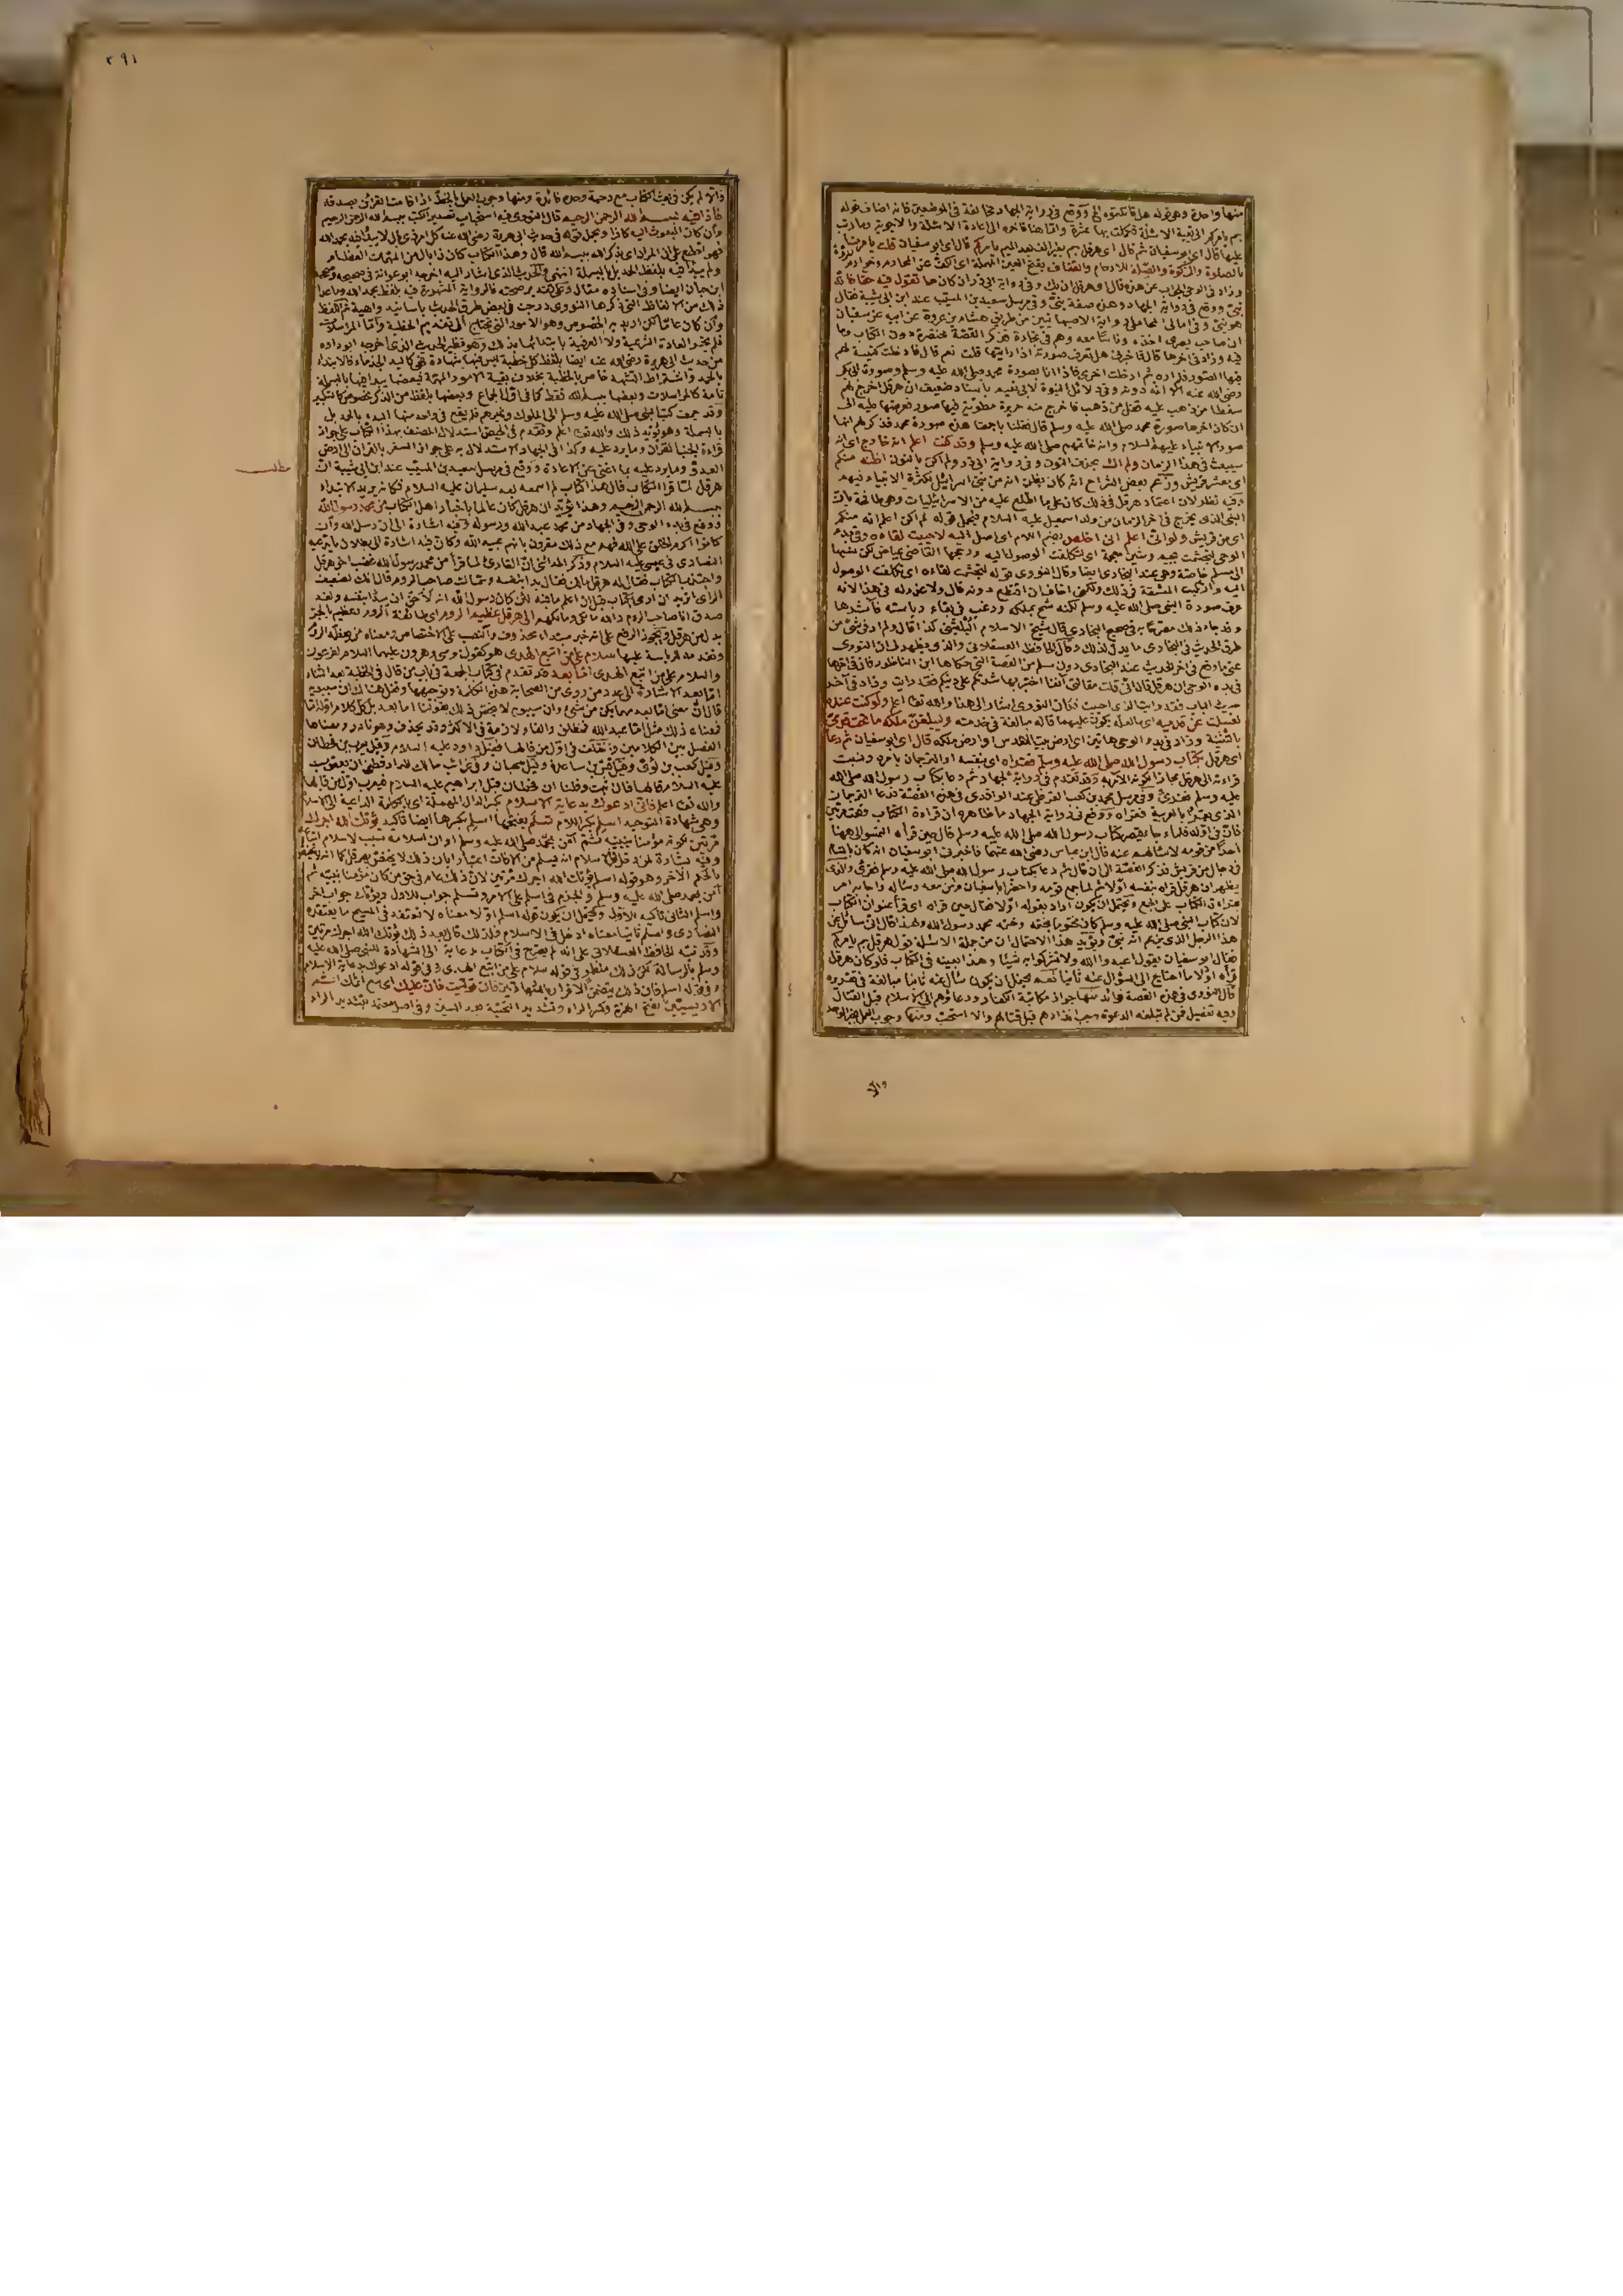 منها واحدة وهو قوله هل قاتلتموه الى ووقع في رواية الجهاد مخالفة في الموضعين فانه اضاف قوله
بم يامركم الى بقية الاسئلة فكملت بها عشرة واما هنا فاخره الى اعادة الاسئلة والاجوبة وما رتب
عليها قال اي ابو سفيان ثم قال اي هرقل بم بغير الف بعد الميم يامركم قال اي ابو سفيان قلت يامرنا
بالصلوة والزكوة والصلة للارحام والعفاف بفتح العين المهملة اي الكف عن المحارم وخوارم المروءة
وزاد في الوحي الجواب عن هذه قال اي هرقل ان يك وفي رواية ابي ذر ان كان ما تقول فيه حقا فانه
نبي ووقع في رواية الجهاد وهذه صفة نبي وفي مرسل سعيد بن المسيب عند ابن ابي شيبة فقال
هو نبي وفي امالي المحاملي رواية الاصبهانيين من طريق هشام بن عروة عن ابيه عن ابي سفيان
ان صاحب بصرى اخذه وناسا معه وهم في تجارة فذكر القصة مختصرة دون الكتاب وما
فيه وزاد في اخرها قال فاخبرني هل تعرف صورته اذا رايتها قلت نعم قال فادخلت كنيسة لهم
فيها الصور فلم اره ثم ادخلت اخرى فاذا انا بصورة محمد صلى الله عليه وسلم وصورة ابي بكر
رضي الله عنه الا انه دونه وفي دلائل النبوة لابي نعيم باسناد ضعيف ان هرقل اخرج لهم
سفطا من ذهب عليه قفل من ذهب فاخرج منه حريرة مطوية فيها صور فعرضها عليهم الى
ان كان اخرها صورة محمد صلى الله عليه وسلم قال فقلنا باجمعنا هذه صورة محمد فذكر لهم انها
صور الانبياء عليهم السلام وانه خاتمهم صلى الله عليه وسلم وقد كنت اعلم انه خارج اي انه
سيبعث في هذا الزمان ولم اك بحذف النون وفي رواية ابي ذر ولم اكن بالنون اظنه منكم
اي معشر قريش وزعم بعض الشراح انه كان يظن انه من بني اسرائيل لكثرة الانبياء فيهم
وفيه نظر لان اعتماد هرقل في ذلك كان على ما اطلع عليه من الاسرائيليات وهي طافحة بان
النبي الذي يخرج في اخر الزمان من ولد اسمعيل عليه السلام فيحمل قوله لم اكن اعلم انه منكم
اي من قريش ولو اني اعلم اني اخلص بضم اللام اي اصل اليه لاحببت لقاءه وفي بدء
الوحي لتجشمت بجيم وشين معجمة اي لتكلفت الوصول اليه ورجحها القاضي عياض لكن نسبها
الى مسلم خاصة وهي عند البخاري ايضا وقال النووي قوله لتجشمت لقاءه اي تكلفت الوصول
اليه وارتكبت المشقة في ذلك ولكني اخاف ان اقتطع دونه قال ولا عذر له في هذا لانه
عرف صورة النبي صلى الله عليه وسلم لكنه شح بملكه ورغب في بقاء رياسته فآثرها
وقد جاء ذلك مصرحا به في صحيح البخاري قال شيخ الاسلام البلقيني كذا قال ولم ار في شيء من
طرق الحديث في البخاري ما يدل لذلك وقال الحافظ العسقلاني والذي يظهر لي ان النووي
عنى ما وقع في اخر الحديث عند البخاري دون مسلم من القصة التي حكاها ابن الناطور فان في اخرها
في بدء الوحي ان هرقل قال اني قلت مقالتي آنفا اختبر بها شدتكم على دينكم فقد رايت وزاد في آخر
حديث الباب فقد رايت الذي احببت فكان النووي اشار الى هذا والله تعالى اعلم ولو كنت عنده
لغسلت عن قدميه اي بالغة في خدمته وليبلغن ملكه ما تحت قدمي
بالتثنية وزاد في بدء الوحي هاتين اي ارض بيت المقدس او ارض ملكه قال اي ابو سفيان ثم دعا
اي هرقل بكتاب رسول الله صلى الله عليه وسلم فقراه اي بنفسه او الترجمان بامره ونسبت
قراءته الى هرقل مجازا لكونه الآمر به وقد تقدم في رواية الجهاد ثم دعا بكتاب رسول الله صلى الله
عليه وسلم فقرئ وفي مرسل محمد بن كعب القرظي عند الواقدي في هذه القصة فدعا الترجمان
الذي يقرأ بالعربية فقراه ووقع في رواية الجهاد ما ظاهره ان قراءة الكتاب وقعت مرتين
فان في اوله فلما جاء قيصر كتاب رسول الله صلى الله عليه وسلم قال حين قرأه التمسوا لي ههنا
احدا من قومه لاسألهم عنه قال ابن عباس رضي الله عنهما فاخبرني ابو سفيان انه كان بالشام
في رجال من قريش فذكر القصة الى ان قال ثم دعا بكتاب رسول الله صلى الله عليه وسلم فقرئ والذي
يظهر ان هرقل قراه بنفسه اولا ثم لما جمع قومه واحضر ابا سفيان ومن معه وساله واجابه امر
بقراءة الكتاب على الجميع ويحتمل ان يكون اراد بقوله اولا فقال حين قراه اي قرأ عنوان الكتاب
لان كتاب النبي صلى الله عليه وسلم كان مختوما بختمه وختمه محمد رسول الله ولهذا قال اني سائل عن
هذا الرجل الذي يزعم انه نبي ويؤيد هذا الاحتمال ان من جملة الاسئلة قول هرقل بم يامركم
فقال ابو سفيان يقول اعبدوا الله ولا تشركوا به شيئا وهذا بعينه في الكتاب فلو كان هرقل
قرأه اولا ما احتاج الى السؤال عنه ثانيا نعم يحتمل ان يكون سأل عنه ثانيا مبالغة في تقريره
قال النووي في هذه القصة فوائد منها جواز مكاتبة الكفار ودعاؤهم الى الاسلام قبل القتال
وفيه تفصيل فمن لم تبلغه الدعوة يجب انذارهم قبل قتالهم والا استحب ومنها وجوب العمل بخبر الواحد
والا
٢٩١
والا لم يكن في بعث الكتاب مع دحية وحده فائدة ومنها وجوب العمل بالخط اذا قامت القرائن بصدقه
فاذا فيه بسم الله الرحمن الرحيم قال النووي فيه استحباب تصدير الكتب ببسم الله الرحمن الرحيم
وان كان المبعوث اليه كافرا ويحمل قوله في حديث ابي هريرة رضي الله عنه كل امر ذي بال لا يبدأ فيه بحمد الله
فهو اقطع على ان المراد اي بذكر الله ببسم الله قال وهذا الكتاب كان ذا بال من المهمات العظام
ولم يبدأ فيه بلفظ الحمد بل بالبسملة انتهى والحديث الذي اشار اليه اخرجه ابو عوانة في صحيحه وصححه
ابن حبان ايضا وفي اسناده مقال وعلى تقدير صحته فالرواية المشهورة فيه بلفظ بحمد الله وما عدا
ذلك من الالفاظ التي ذكرها النووي وردت في بعض طرق الحديث باسانيد واهية ثم اللفظ
وان كان عاما لكن اريد به الخصوص وهو الامور التي تحتاج الى تقديم الخطبة واما المراسلات
فلم تجر العادة الشرعية ولا العرفية بابتدائها بذلك وهو نظير الحديث الذي اخرجه ابو داود
من حديث ابي هريرة رضي الله عنه ايضا بلفظ كل خطبة ليس فيها شهادة فهي كاليد الجذماء فالابتداء
بالحمد واشتراط التشهد خاص بالخطبة بخلاف بقية الامور المهمة فبعضها يبدأ فيها بالبسملة
تامة كالمراسلات وبعضها ببسم الله فقط كما في اول الجماع وبعضها بلفظ من الذكر مخصوص كالتكبير
وقد جمعت كتب النبي صلى الله عليه وسلم الى الملوك وغيرهم فلم يقع في واحد منها البدء بالحمد بل
بالبسملة وهو يؤيد ذلك والله تعالى اعلم وتقدم في الحيض استدلال المصنف بهذا الكتاب على جواز
قراءة الجنب القرآن وما يرد عليه وكذا في الجهاد الاستدلال به على جواز السفر بالقرآن الى ارض
العدو وما يرد عليه بما اغنى عن الاعادة ووقع في مرسل سعيد بن المسيب عند ابن ابي شيبة ان
مطلب
هرقل لما قرأ الكتاب قال هذا كتاب لم اسمعه بعد سليمان عليه السلام فكانه يريد الابتداء
ببسم الله الرحمن الرحيم وهذا يؤيد ان هرقل كان عالما باخبار اهل الكتاب من محمد رسول الله
ووقع في بدء الوحي وفي الجهاد من محمد عبد الله ورسوله وفيه اشارة الى ان رسل الله وان
كانوا اكرم الخلق على الله فهم مع ذلك مقرون بانهم عبيد الله وكان فيه اشارة الى بطلان ما يدعيه
النصارى في عيسى عليه السلام وذكر المدائني ان القارئ لما قرأ من محمد رسول الله غضب اخو هرقل
واجتذب الكتاب فقال له هرقل مالك فقال بدأ بنفسه وسماك صاحب الروم قال انك لضعيف
الرأي اتريد ان ارمي بكتاب قبل ان اعلم ما فيه لئن كان رسول الله انه لاحق ان يبدأ بنفسه ولقد
صدق انا صاحب الروم والله مالكي ومالكهم الى هرقل عظيم الروم اي طائفة الروم وعظيم بالجر
بدل من هرقل ويجوز الرفع على انه خبر مبتداء محذوف والنصب على الاختصاص ومعناه من يعظمه الروم
وتقدمه للرياسة عليها سلام على من اتبع الهدى هو كقول موسى وهرون عليهما السلام لفرعون
والسلام على من اتبع الهدى اما بعد قد تقدم في كتاب الجمعة في باب من قال في الخطبة بعد الثناء
اما بعد الاشارة الى عدد من روى من الصحابة هذه الكلمة وتوجيهها ونقل هنالك ان سيبويه
قال ان معنى اما بعد مهما يكن من شيء وان سيبويه لا يخص ذلك بقولنا اما بعد بل كل كلام اوله اما
فمعناه ذلك مثل اما عبد الله فمنطلق والفاء لازمة في الاكثر وقد تحذف وهو نادر ومعناها
الفصل بين الكلامين واختلف في اول من قالها فقيل داود عليه السلام وقيل يعرب بن قحطان
وقيل كعب بن لؤي وقيل قس بن ساعدة وقيل سحبان وفي غرائب مالك للدارقطني ان يعقوب
عليه السلام قالها فان ثبت وقلنا ان قحطان قبل ابراهيم عليه السلام فيعرب اول من قالها
والله تعالى اعلم فاني ادعوك بدعاية الاسلام بكسر الدال المهملة اي بالكلمة الداعية الى الاسلام
وهي شهادة التوحيد اسلم بكسر اللام تسلم بفتحها اسلم بكسرها ايضا تاكيد يؤتك الله اجرك
مرتين لكونه مؤمنا بنبيه ثم آمن بمحمد صلى الله عليه وسلم او ان اسلامه سبب لاسلام اتباعه
وفيه بشارة لمن دخل في الاسلام انه يسلم من الآفات اعتبارا بان ذلك لا يختص بهرقل كما انه لا يختص
بالحكم الآخر وهو قوله اسلم يؤتك الله اجرك مرتين لان ذلك عام في حق من كان مؤمنا بنبيه ثم
آمن بمحمد صلى الله عليه وسلم والجزم في اسلم على الامر وتسلم جواب للاول ويؤتك جواب آخر
واسلم الثاني تاكيد للاول ويحتمل ان يكون قوله اسلم اولا معناه لا تعتقد في المسيح ما يعتقده
النصارى واسلم ثانيا معناه ادخل في الاسلام فلذلك قال بعد ذلك يؤتك الله اجرك مرتين
وقد نبه الحافظ العسقلاني على انه لم يصرح في الكتاب بدعاية الى الشهادة للنبي صلى الله عليه
وسلم بالرسالة لكن ذلك منطو في قوله سلام على من اتبع الهدى وفي قوله ادعوك بدعاية الاسلام
وفي قوله اسلم فان ذلك يتضمن الاقرار بالشهادتين فان توليت فان عليك اي مع اثمك اثم
الاريسيين بفتح الهمزة وكسر الراء وتشديد التحتية بعد السين وفي اصل معتمد بتشديد الراء